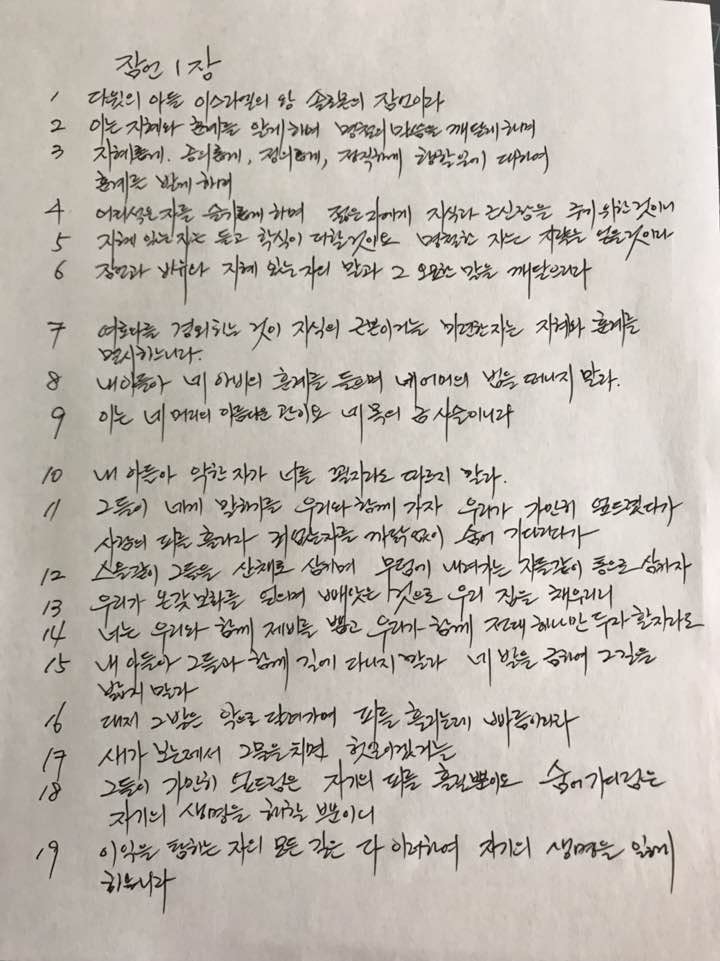 잠언 1장
1 다윗의 아들 이스라엘의 왕 솔로몬의 잠언이라
2 이는 지혜와 훈계를 알게 하며 명철의 말씀을 깨닫게 하며
3 지혜롭게, 공의롭게, 정의롭게, 정직하게 행할 일에 대하여
훈계를 받게 하며
4 어리석은 자를 슬기롭게 하며 젊은 자에게 지식과 근신함을 주기 위한 것이니
5 지혜 있는 자는 듣고 학식이 더할 것이요 명철한 자는 지략을 얻을 것이라
6 잠언과 비유와 지혜 있는 자의 말과 그 오묘한 말을 깨달으리라
7 여호와를 경외하는 것이 지식의 근본이거늘 미련한 자는 지혜와 훈계를
멸시하느니라.
8 내 아들아 네 아비의 훈계를 들으며 네 어미의 법을 떠나지 말라.
9 이는 네 머리의 아름다운 관이요 네 목의 금 사슬이니라
10 내 아들아 악한 자가 너를 꾈지라도 따르지 말라.
11 그들이 네게 말하기를 우리와 함께 가자 우리가 가만히 엎드렸다가
사람의 피를 흘리자 죄 없는 자를 까닭 없이 숨어 기다리다가
12 스올같이 그들을 산 채로 삼키며 무덤에 내려가는 자들같이 통으로 삼키자
13 우리가 온갖 보화를 얻으며 빼앗은 것으로 우리 집을 채우리니
14 너는 우리와 함께 제비를 뽑고 우리가 함께 전대 하나만 두자 할지라도
15 내 아들아 그들과 함께 길에 다니지 말라 네 발을 금하여 그 길을
밟지 말라
16 대저 그 발은 악으로 달려가며 피를 흘리는데 빠름이니라
17 새가 보는데서 그물을 치면 헛일이겠거늘
18 그들이 가만히 엎드림은 자기의 피를 흘릴 뿐이요 숨어 기다림은
자기의 생명을 해할 뿐이니
19 이익을 탐하는 자의 모든 길은 다 이러하여 자기의 생명을 잃게
하느니라